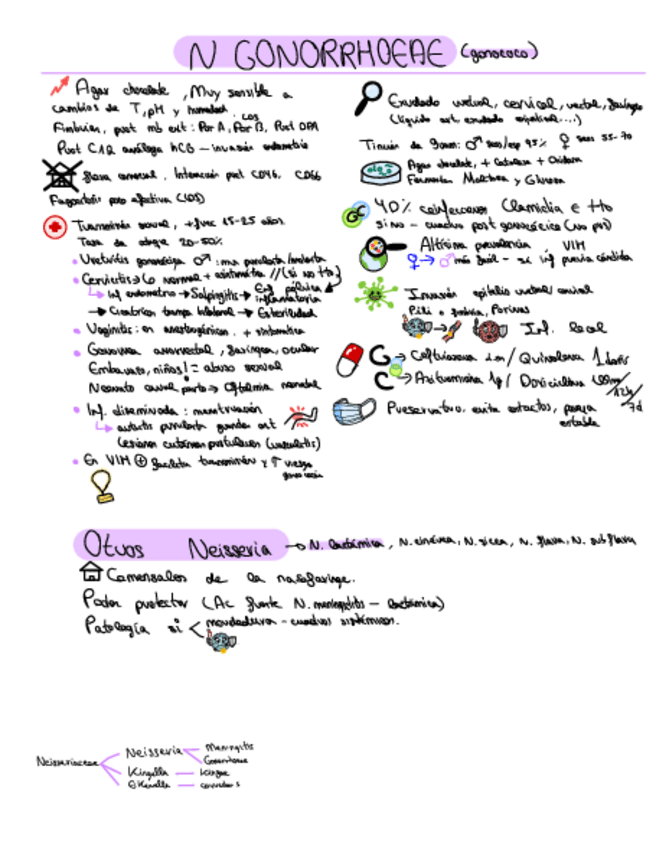 N GONORRHOEAE (gonococo)
Agar chocolate, Muy sensible a
cambios de T, pH y humedad.
LOS
Fimbrias, prot mb ext: Por A, Por B, Prot OPA
Prot C1R análoga hCG - invasión endometrio
flora comensal. Interacción prot CD46, CD66
Fagocitosis poco efectiva (LOS)
Transmisión sexual, + frec 15-25 años
Tasa de ataque 20-50%
• Uretritis gonocócica ♂: muy purulenta/molesta
• Cervicitis → lo normal + asintomática // (si no tto)
↳ Inf endometrio → Salpingitis → Enf pélvica inflamatoria
→ Cicatriza trompa bilateral → Esterilidad
• Vaginitis: en anestrogénicas. + sintomática
• Gonorrea anorrectal, faríngea, ocular
Embarazo, niños! = abuso sexual
Neonato canal parto → Oftalmia neonatal
• Inf. diseminada: menstruación
↳ artritis purulenta grandes art
Lesiones cutáneas pustulosas (vasculitis)
• En VIH ⊕ facilita transmisión y ↑ riesgo
Exudado uretral, cervical, rectal, faríngeo
(líquido art. exudado
Tinción de Gram: ♂ sens/esp 95% ♀ sens 55-70
Agar chocolate, + Catalasa + Oxidasa
Fermentan Glucosa
GC 40% coinfecciones Clamidia → tto
si no - cuadro post gonocócico (no pus)
Altísima prevalencia VIH
♀ → ♂ más fácil - si inf previa cándida
Invasión epitelio uretral/cervical
Pili o fimbria, Porinas
Inf. local
G → Ceftriaxona i.m / Quinolona 1 dosis
C → Azitromicina 1g / Doxiciclina 100m/12h/7d
Preservativo, evita contactos, pareja
estable
Otras Neisseria → N. lactámica, N. cinérea, N. sicca, N. flava, N. subflava
Comensales de la nasofaringe.
Poder protector (Ac frente N. meningitis - lactámica)
Patología si < mordedura - cuadros sistémicos.
Neisseriaceae
Neisseria
Meningitis
Gonorrhoeae
Kingella — Kingae
Eikenella — corrodens